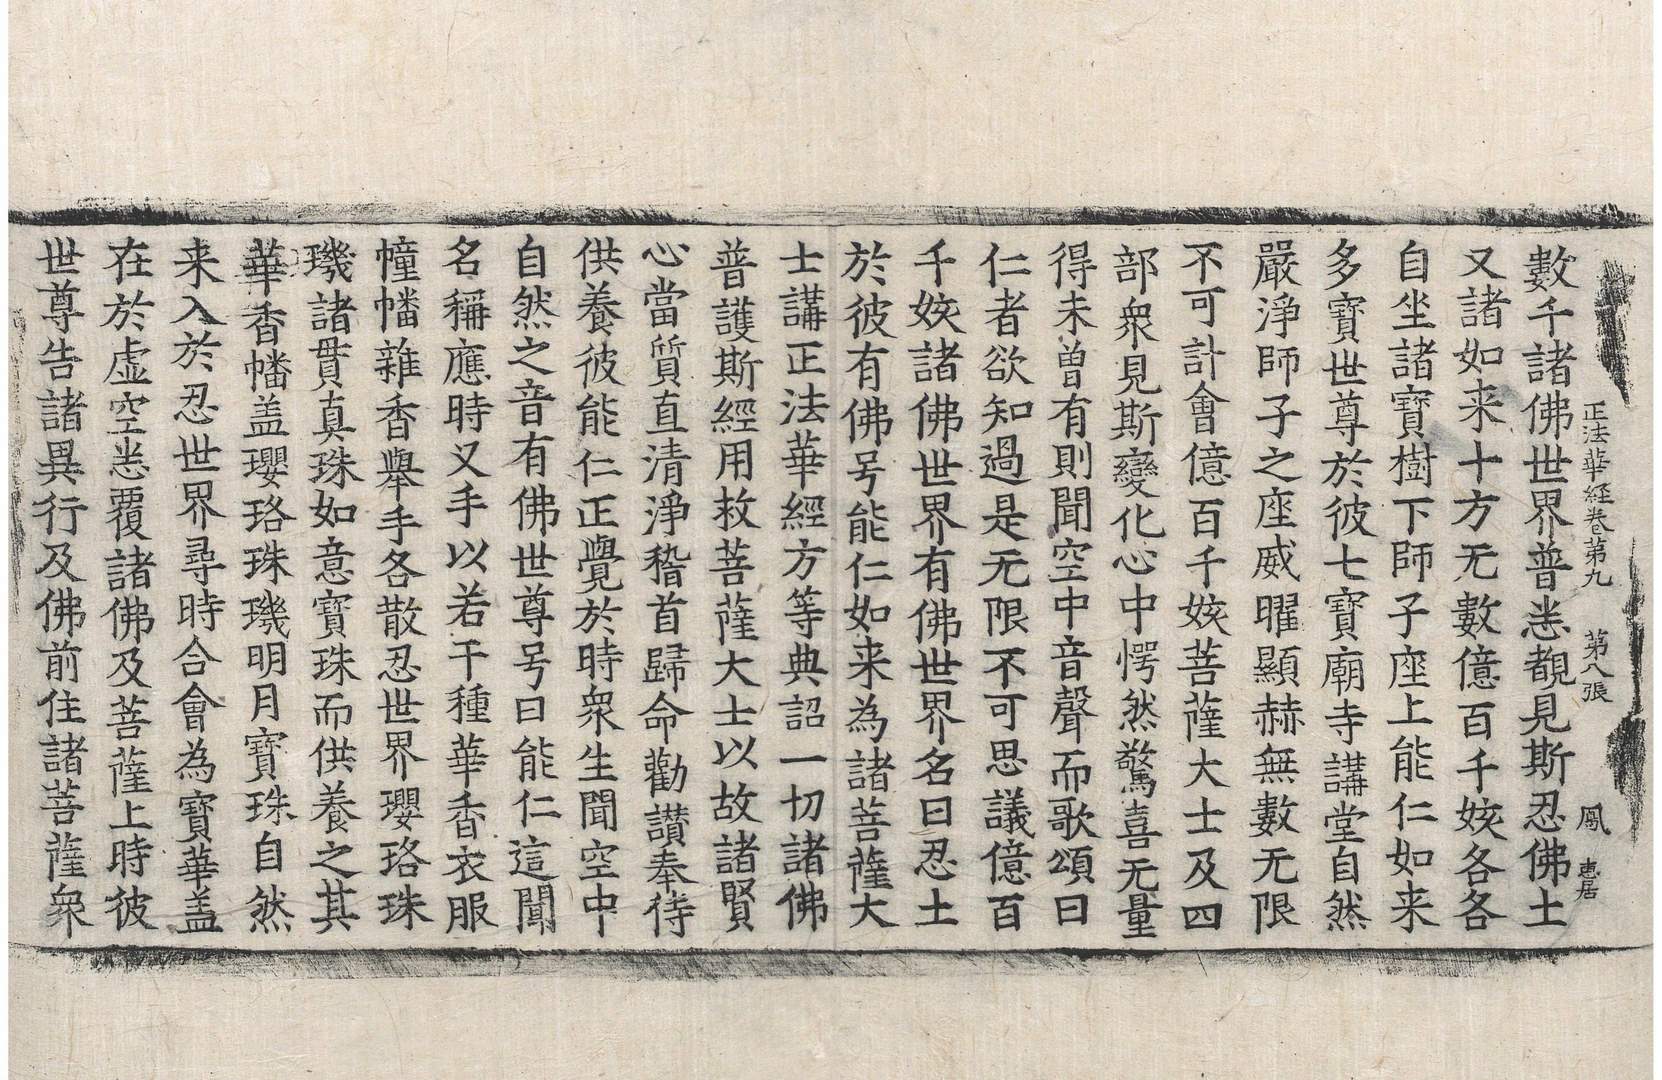 正法華經卷第九　第八張　鳳　惠居
數千諸佛世界普悉覩見斯忍佛土
又諸如来十方无數億百千姟各各
自坐諸寶樹下師子座上能仁如来
多寶世尊於彼七寶廟寺講堂自然
嚴淨師子之座威曜顯赫無數无限
不可計會億百千姟菩薩大士及四
部衆見斯變化心中愕然驚喜无量
得未曾有則聞空中音聲而歌頌曰
仁者欲知過是无限不可思議億百
千姟諸佛世界有佛世界名曰忍土
於彼有佛号能仁如来為諸菩薩大
士講正法華經方等典詔一切諸佛
普護斯經用救菩薩大士以故諸賢
心當質直清淨稽首歸命勸讃奉侍
供養彼能仁正覺於時衆生聞空中
自然之音有佛世尊号曰能仁這聞
名稱應時叉手以若干種華香衣服
幢幡雜香舉手各散忍世界瓔珞珠
璣諸貫真珠如意寶珠而供養之其
華香幡盖瓔珞珠璣明月寶珠自然
来入於忍世界尋時合會為寶華盖
在於虚空悉覆諸佛及菩薩上時彼
世尊告諸異行及佛前住諸菩薩衆